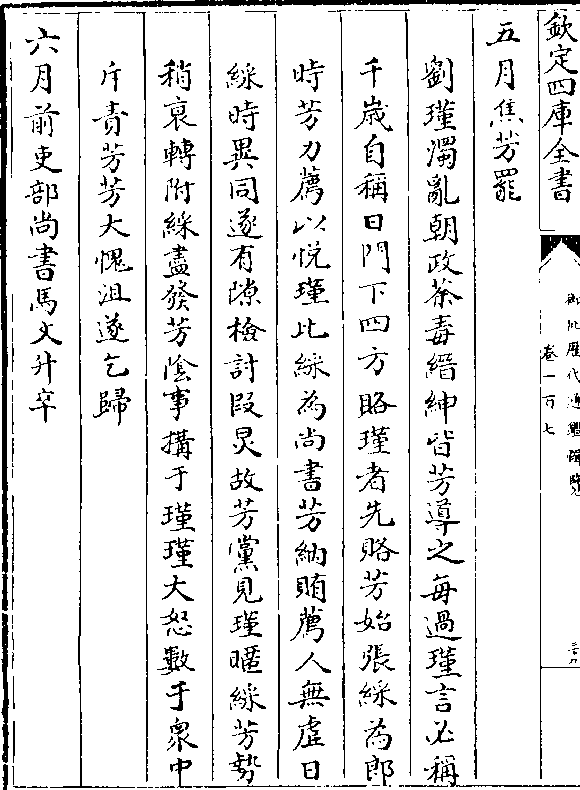 欽定四庫全書
御批歴代通鑑輯覽
卷一百七
五月焦芳罷
劉瑾濁亂朝政荼毒縉紳皆芳導之每過瑾言必稱
千歲自稱曰門下四方賂瑾者先賂芳始張綵為郎
時芳力薦以悦瑾比綵為尚書芳納賄薦人無虚日
綵時異同遂有隙檢討段炅故芳黨見瑾暱綵芳勢
稍衰轉附綵盡發芳陰事搆于瑾瑾大怒數于衆中
斥責芳芳大愧沮遂乞歸
六月前吏部尚書馬文升卒